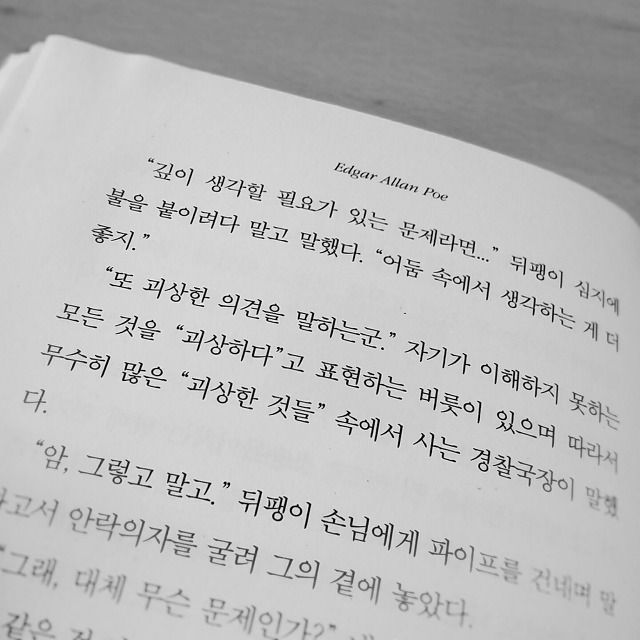 Edgar Allan Poe
“깊이 생각할 필요가 있는 문제라면...” 뒤팽이 심지에
불을 붙이려다 말고 말했다. “어둠 속에서 생각하는 게 더
좋지.”
“또 괴상한 의견을 말하는군.” 자기가 이해하지 못하는
모든 것을 “괴상하다”고 표현하는 버릇이 있으며 따라서
무수히 많은 “괴상한 것들” 속에서 사는 경찰국장이 말했
다.
“암, 그렇고 말고.” 뒤팽이 손님에게 파이프를 건네며 말
하고서 안락의자를 굴려 그의 곁에 놓았다.
“그래, 대체 무슨 문제인가?”
같은